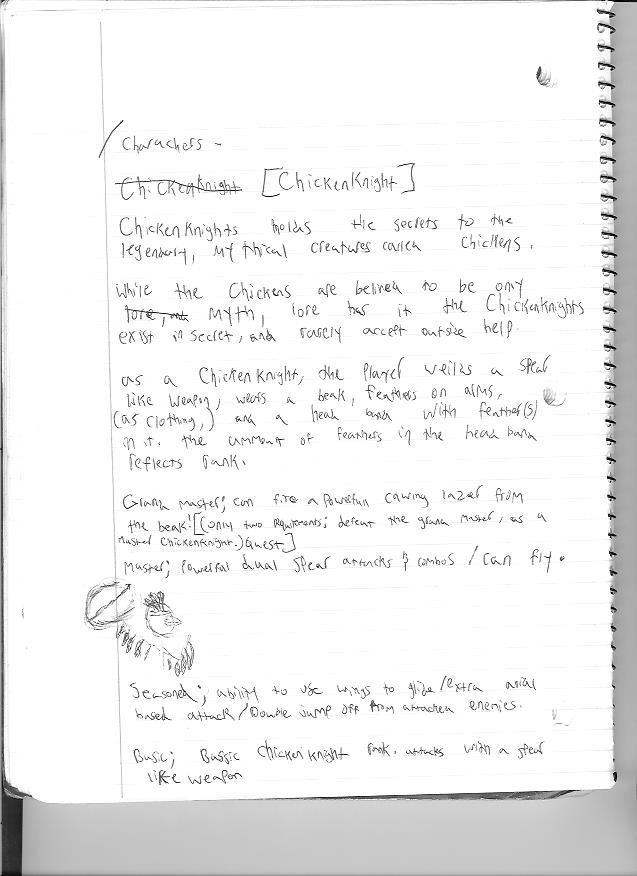 Charachers -
ChickenKnight [ChickenKnight]
ChickenKnights holds the secrets to the
legendary, mythical creatures called Chickens.
While the Chickens are belived to be only
lore, and myth, lore has it the ChickenKnights
exist in secret, and rarely accept outside help.
as a ChickenKnight, the player weilds a spear
like weapon, wears a beak, feathers on arms,
(as clothing,) and a head band with feather(s)
in it. the ammount of feathers in the head band
reflects rank.
Grand master; can fire a powerfull cawing lazer from
the beak! [(only two rquirments; defeat the grand master, as a
master ChickenKnight.) Quest]
master; powerful dual spear attacks & combos / can fly.
Seasoned; ability to use wings to glide/extra arial
based attack/Double jump off from attacked enemies.
Basic; Bassic chicken knight rank. attacks with a spear
like weapon